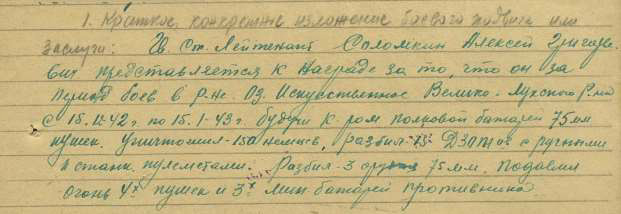 1. Краткое, конкретное изложение боевого подвига или
заслуги: Гв. Ст. Лейтенант Соломкин Алексей Григорье-
вич представляется к награде за то, что он за
период боев в р-не Оз. Искуственное Велико-Лукского р-на
с 15.12.42 г по 15.1-43 г будучи к-ром полковой батареи 75 мм
пушек. Уничтожил-150 немцев, разбил-13 ДЗОТ ов с ручными
и станк. пулеметами. Разбил-3 75 мм. Подавил
огонь 4х пушек и 3х мин батарей противника